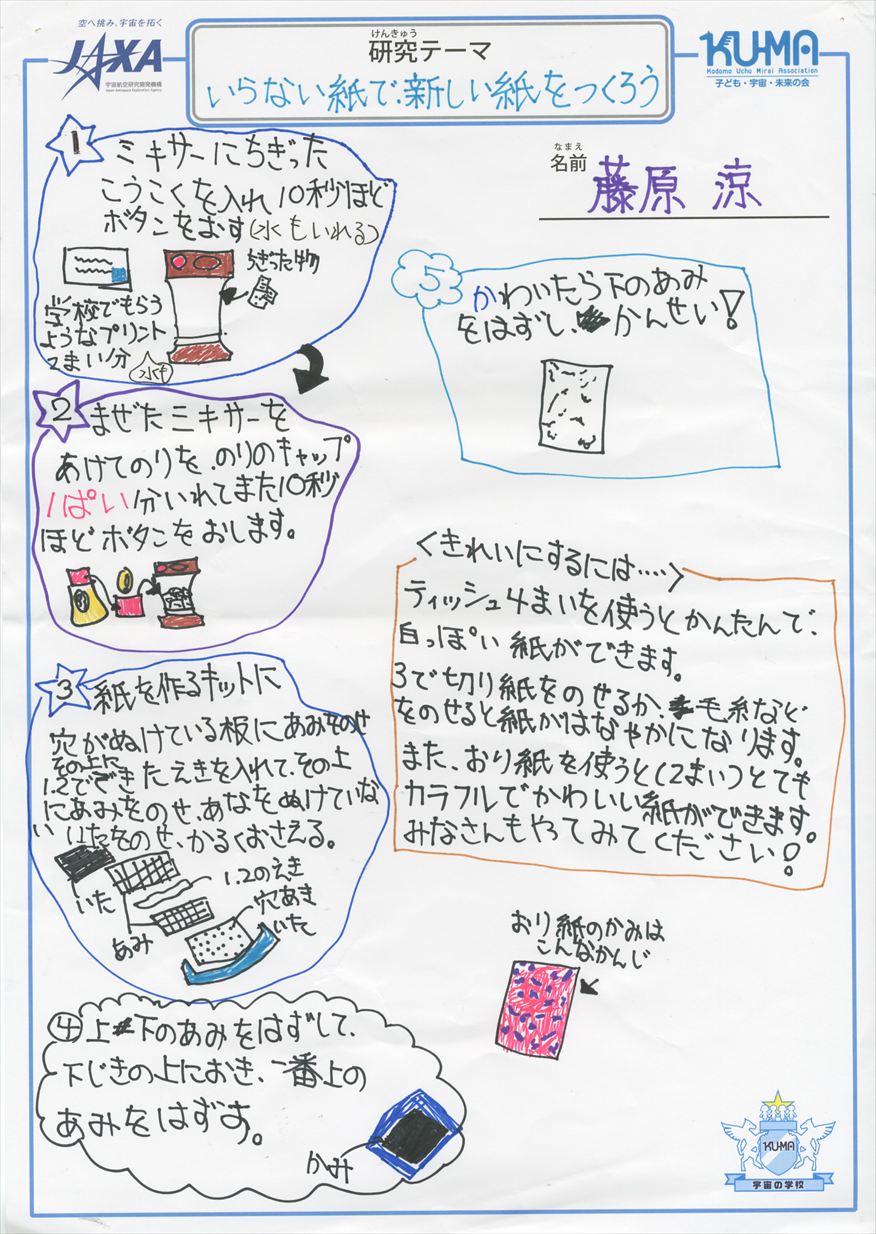 空へ挑み、宇宙を拓く
JAXA
宇宙航空研究開発機構
Japan Aerospace Exploration Agency
けんきゅう
研究テーマ
いらない紙で、新しい紙をつくろう
KU-MA
Kodomo Uchu Mirai Association
子ども・宇宙・未来の会
なまえ
名前
藤原 涼
1
ミキサーにちぎった
こうこくを入れ10秒ほど
ボタンをおす(水もいれる)
ちぎった物
学校でもらう
ようなプリント
2まい分
水も
2
まぜたミキサーを
あけてのりを、のりのキャップ
1ぱい分いれてまた10秒
ほどボタンをおします。
3
紙を作るキットに
穴がぬけている板にあみをのせ
その上に
1.2でできたえきを入れて、その上
にあみをのせ、あなをぬけていな
いいたをのせ、かるくおさえる。
いた
あみ
1.2のえき
穴あき
いた
4
上下のあみをはずして、
下じきの上におき、一番上の
あみをはずす。
かみ
5
かわいたら下のあみ
をはずし、かんせい!
<きれいにするには‥‥>
ティッシュ4まいを使うとかんたんで、
白っぽい紙ができます。
3で切り紙をのせるか、毛糸など
をのせると紙がはなやかになります。
また、おり紙を使うと(2まい)とても
カラフルでかわいい紙ができます。
みなさんもやってみてください!
おり紙のかみは
こんなかんじ
KU-MA
宇宙の学校